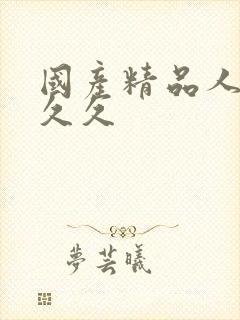 國產精品人
久久
夢芸曦